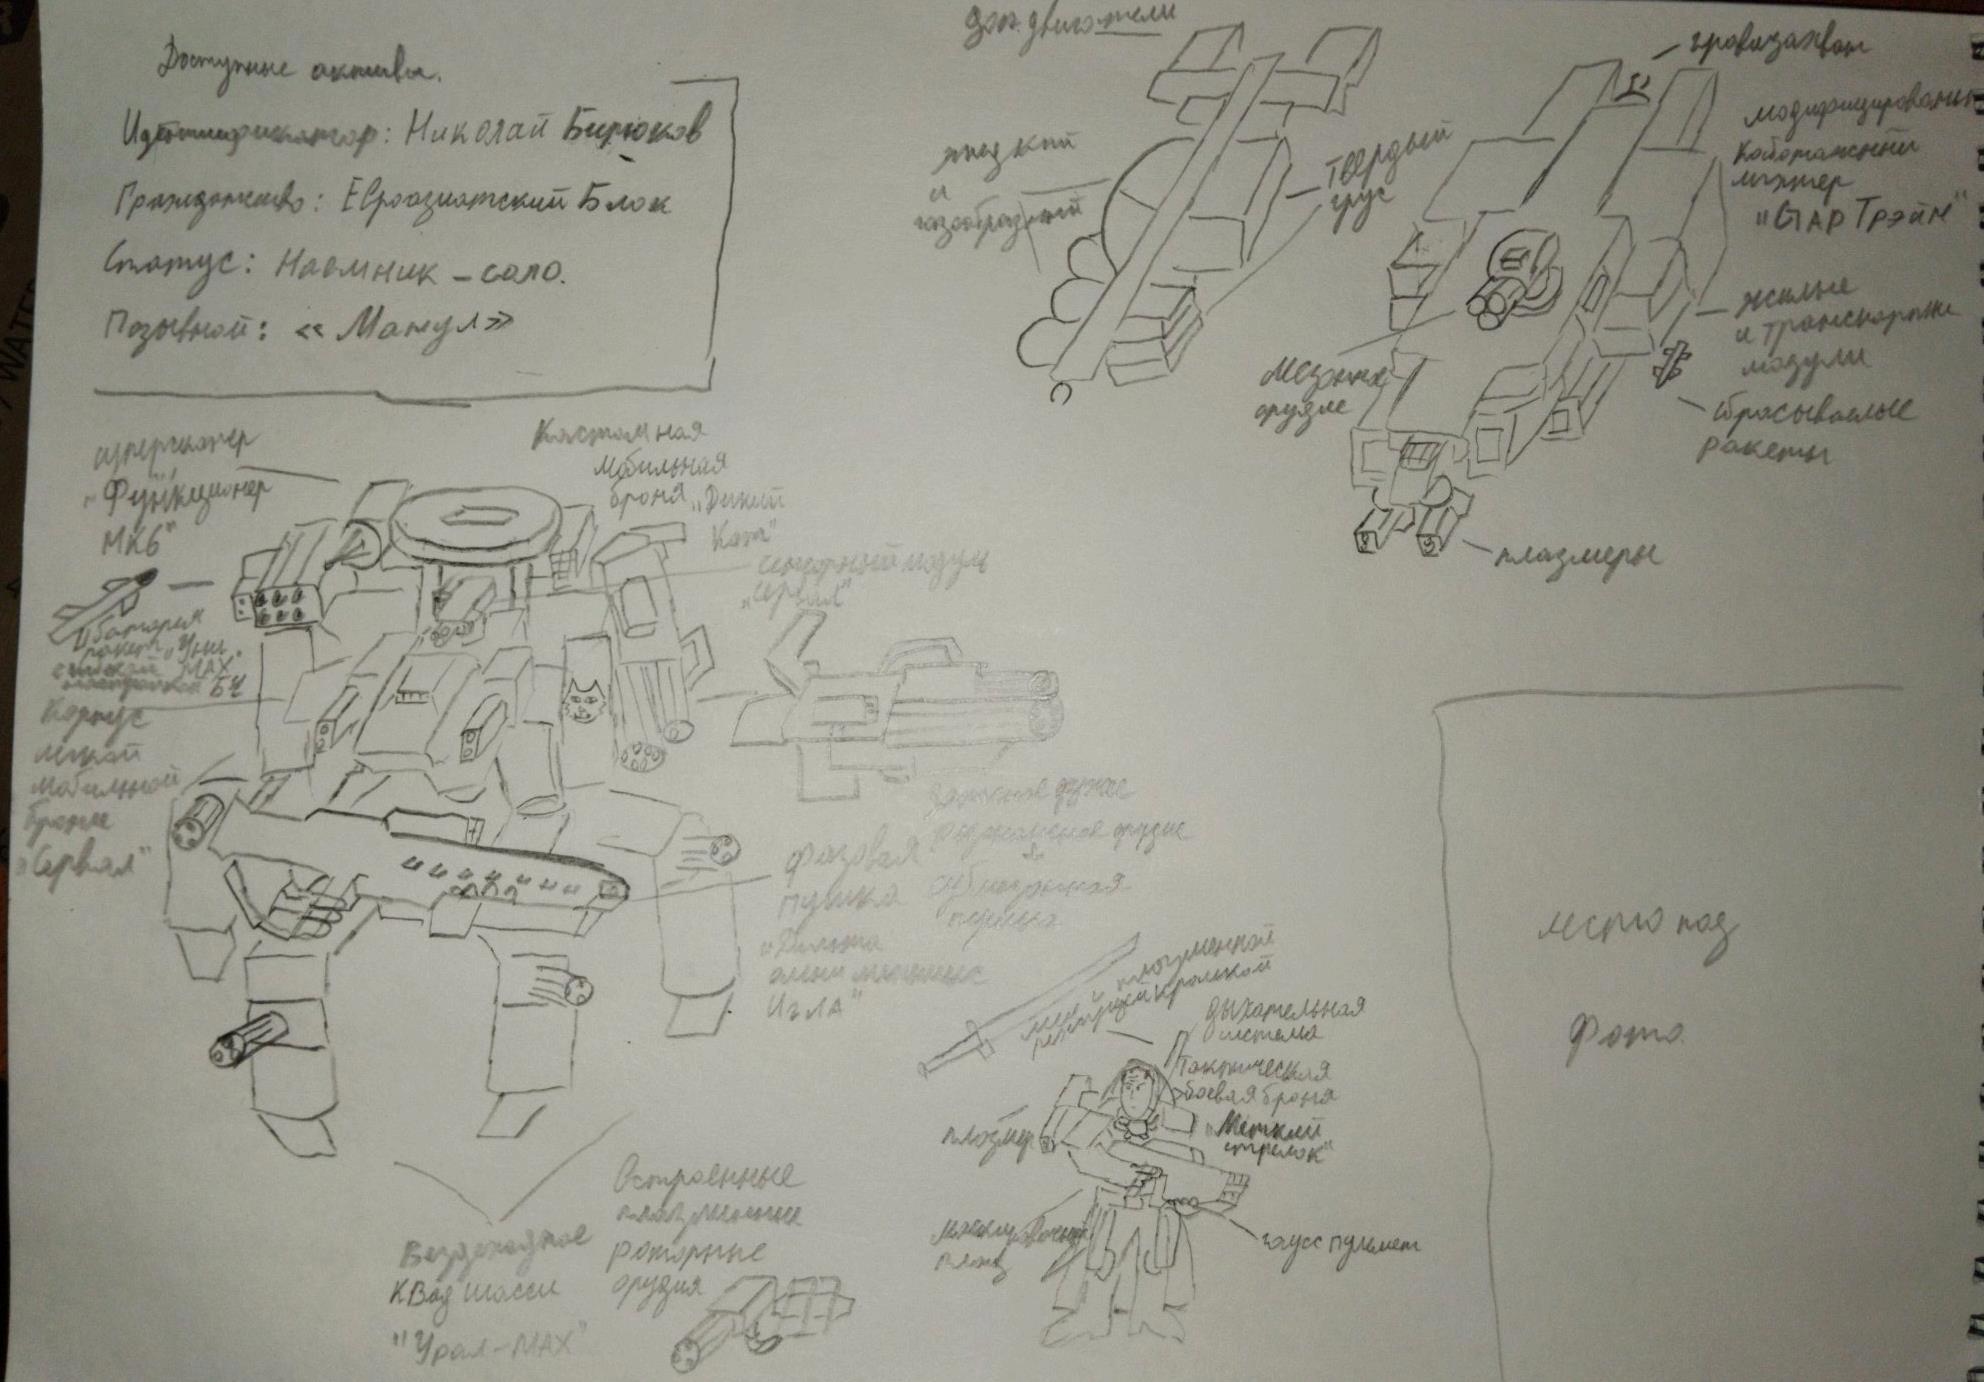 Доступные активы.
Идентификатор: Николай Бирюков
Гражданство: Евроазиатский Блок
Статус: Наемник-соло.
Позывной: «Манул»
доп. двигатели
жидкий
и
газообразный
твердый
грус
гравизахват
модифицированный
каботажный
лихтер
"Стар Трэйн"
жилые
и транспортные
модули
сбрасываемые
ракеты
мезонное
орудие
плазмеры
суперсканер
"Функционер
МК6"
Кастомная
мобильная
броня "Дикий
Кот"
сенсорный модуль
"Сервал"
батарея
ракет "Уни
МАХ"
БЧ
Корпус
легкой
мобильной
брони
"Сервал"
фазовая
пушка
Игла"
орудие
плазменной
режущей кромкой
дыхательная
система
Тактическая
боевая броня
"Меткий
стрелок"
плазмер
маскировочный
плащ
гаусс пулемет
Вездеходное
квад шасси
"Урал-МАХ"
Встроенные
плазменные
роторные
орудия
место под
фото